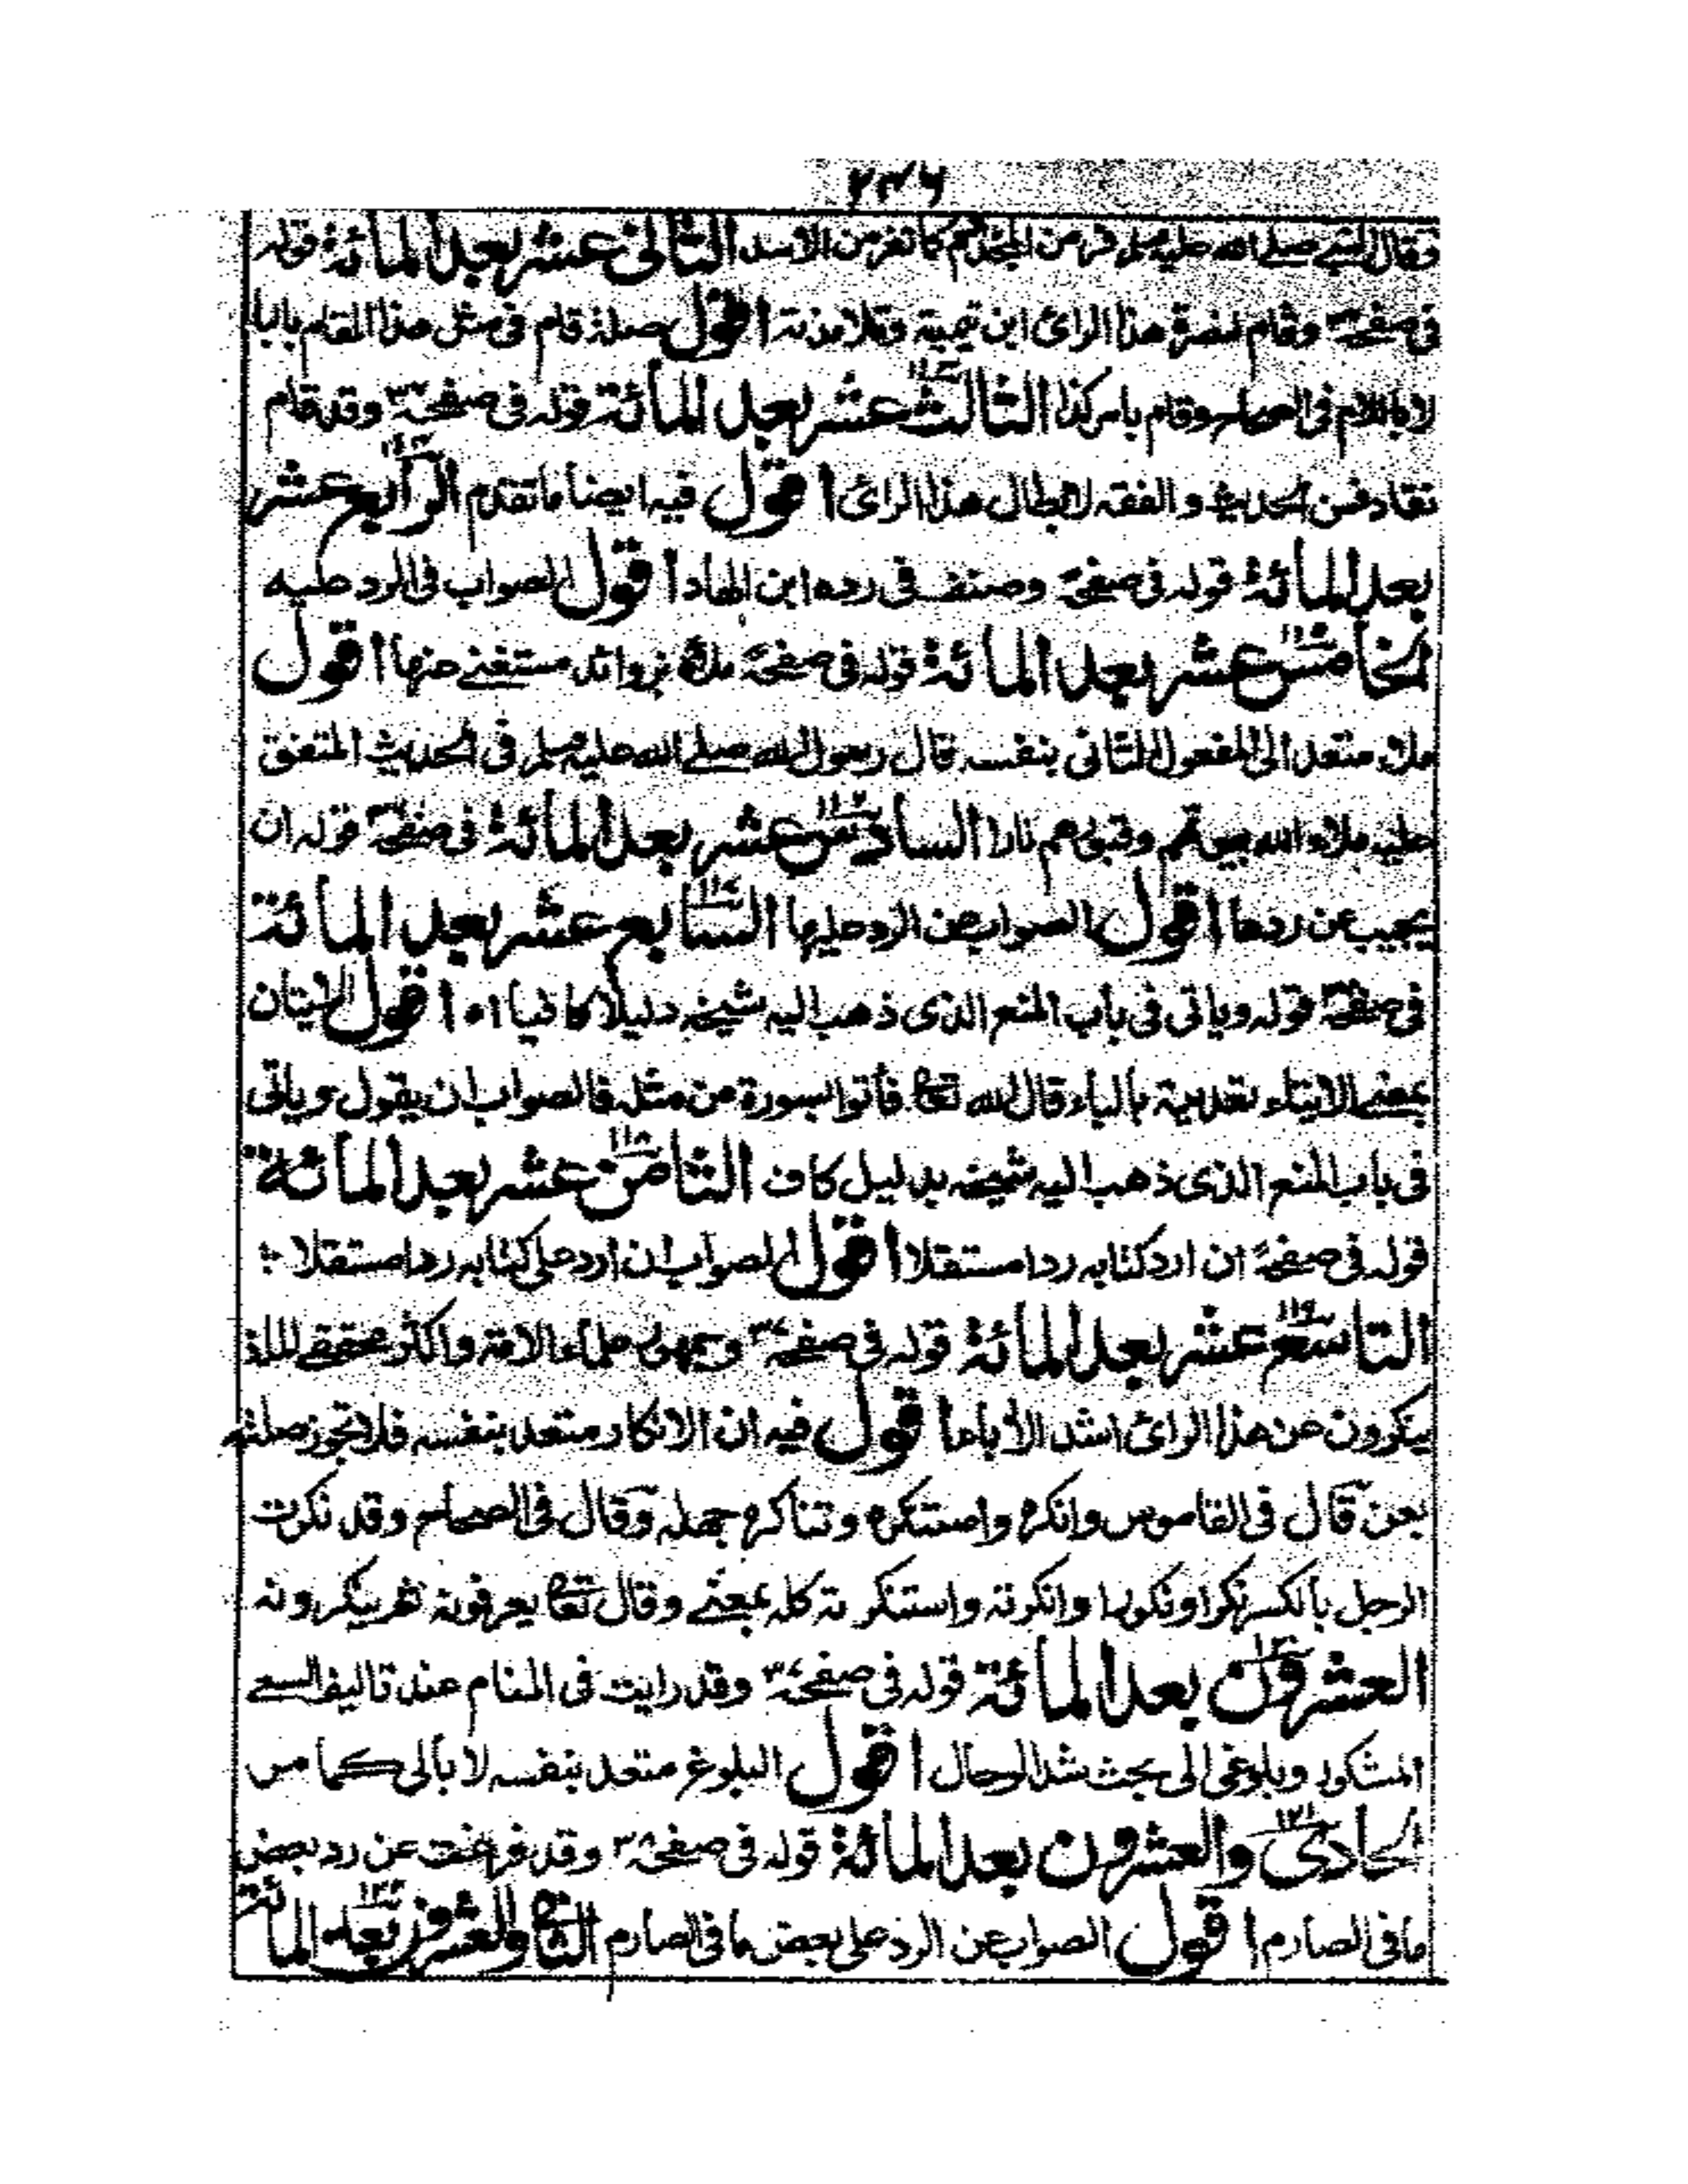 ٢٣٦
وقال النبي صلى الله عليه وسلم فر من المجذوم كما تفر من الاسد الثاني عشر بعد المائة قوله
في صفحة وقام لنصرة هذا الرائ ابن تيمية وتلامذته اقول صلة قام في مثل هذا المقام بالباء
لا باللام في الصحاح وقام بامر كذا الثالث عشر بعد المائة قوله في صفحة ٣ وقد قام
نقاد فن الحديث والفقه لابطال هذا الرائ اقول فيه ايضا ما تقدم الرابع عشر
بعد المائة قوله في صفحة وصنف في رده ابن الهاد اقول الصواب في الرد عليه
الخامس عشر بعد المائة قوله في صفحة ملاه بزوائد مستغنى عنها اقول
ملاء متعد الى المفعول الثاني بنفسه قال رسول الله صلى الله عليه وسلم في الحديث المتفق
عليه ملاء الله بيوتهم وقبورهم نارا السادس عشر بعد المائة في صفحة قوله ان
يجيب عن ردها اقول الصواب عن الرد عليها السابع عشر بعد المائة
في صفحة قوله وياتي في باب المنع الذى ذهب اليه شيخه دليلا كافيا اه اقول الاتيان
بمعنى الايتاء تعديته بالباء قال الله تعا فأتوا بسورة من مثله فالصواب ان يقول وياتي
في باب المنع الذى ذهب اليه شيخه بدليل كاف الثامن عشر بعد المائة ١١٨
قوله في صفحة ان ارد كتابه ردا مستقلا اقول الصواب ان ارد على كتابه ردا مستقلا
التاسع عشر بعد المائة ١١٩ قوله في صفحة ٣ وجمهور علماء الامة واكثر محققى الملة
ينكرون عن هذا الرائ اشد الأباء اقول فيه ان الانكار متعد بنفسه فلا تجوز صلته
بعن قال في القاموس وانكره واستنكره وتناكره جهله وقال في الصحاح وقد نكرت
الرجل بالكسر نكرا ونكورا وانكرته واستنكرته كله بمعنى وقال تعا يعرفونه ثم ينكرونه
العشرون بعد المائة ١٢٠ قوله في صفحة ٣ وقد رايت في المنام عند تاليف السعى
المشكور وبلوغى الى بحث شد الرحال اقول البلوغ متعد بنفسه لا بالى كما مر
الحادى والعشرون بعد المائة ١٢١ قوله في صفحة ٣ وقد فرغت عن رد بعض
ما في الصارم اقول الصواب عن الرد على بعض ما في الصارم الثانى والعشرون بعد المائة ١٢٢